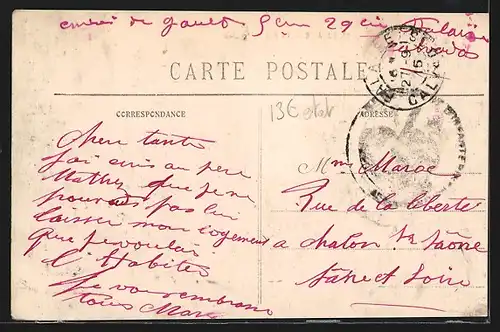 envoi de gault 5 em 29 em
CARTE POSTALE
13€
CORRESPONDANCE
ADRESSE
CALAIS
Chere tante
jai ecris au pere
Mathey que je ne
pourrais pas lui
laisser mon logement
que je voulais
l'Habiter
Je vous embrasse
tous Marc
Mme Maroc
Rue de la liberte
a chalon sr Saône
Saône et Loire